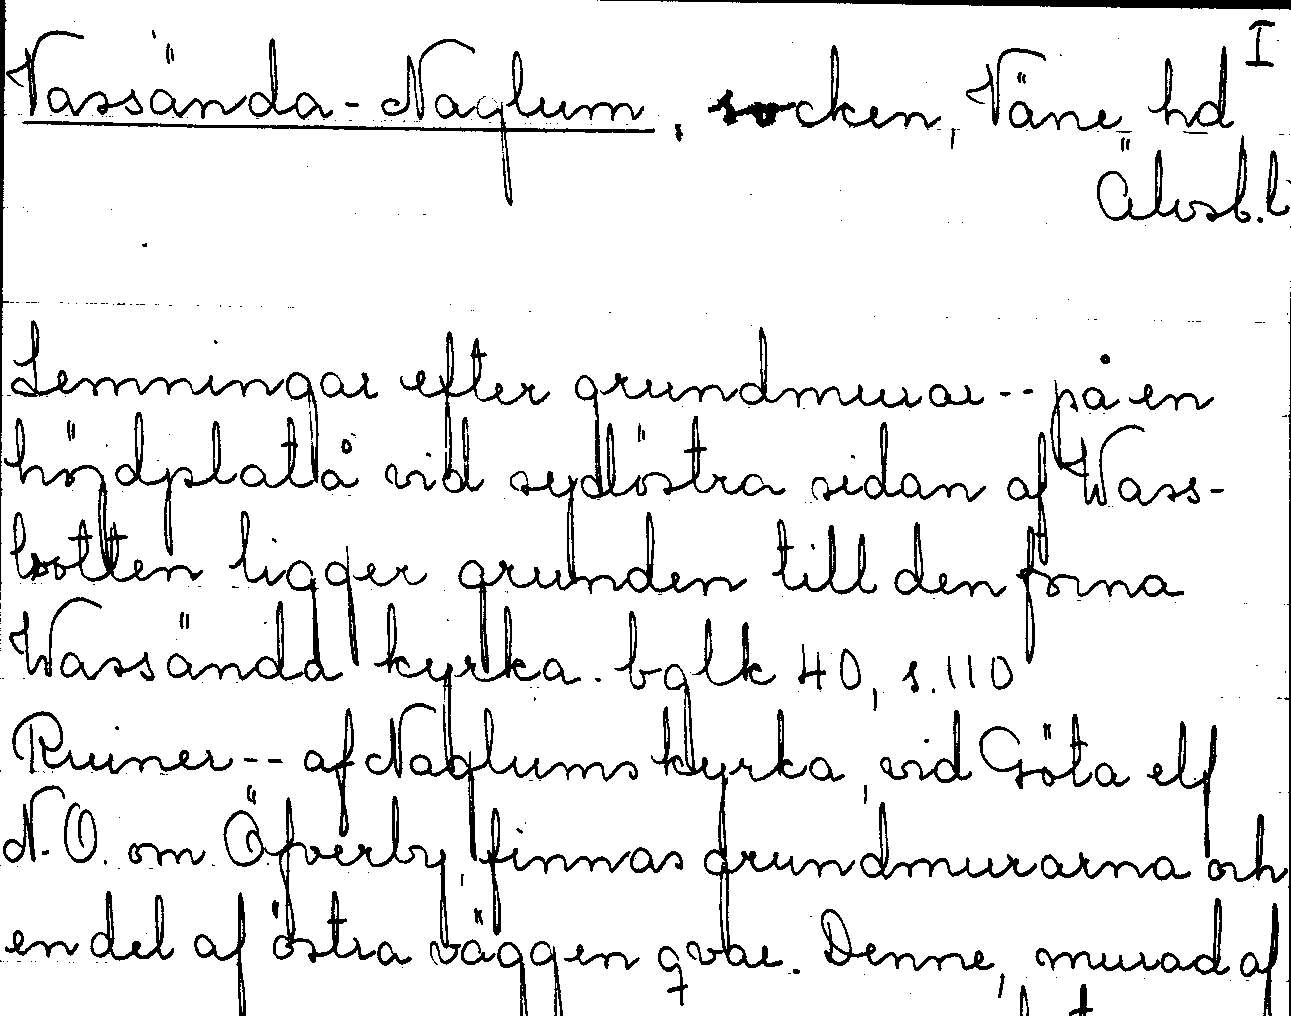 I
Vassända-Naglum, socken, Väne hd
Älvsb. l
Lemningar efter grundmurar -- på en
höjdplatå vid sydöstra sidan af Wass-
botten ligger grunden till den forna
Wassända kyrka. balk 40, s. 110
Ruiner -- af Naglums kyrka, vid Göta elf
N.O. om Öfverby, finnas grundmurarna och
en del af östra väggen qvar. Denne, murad af